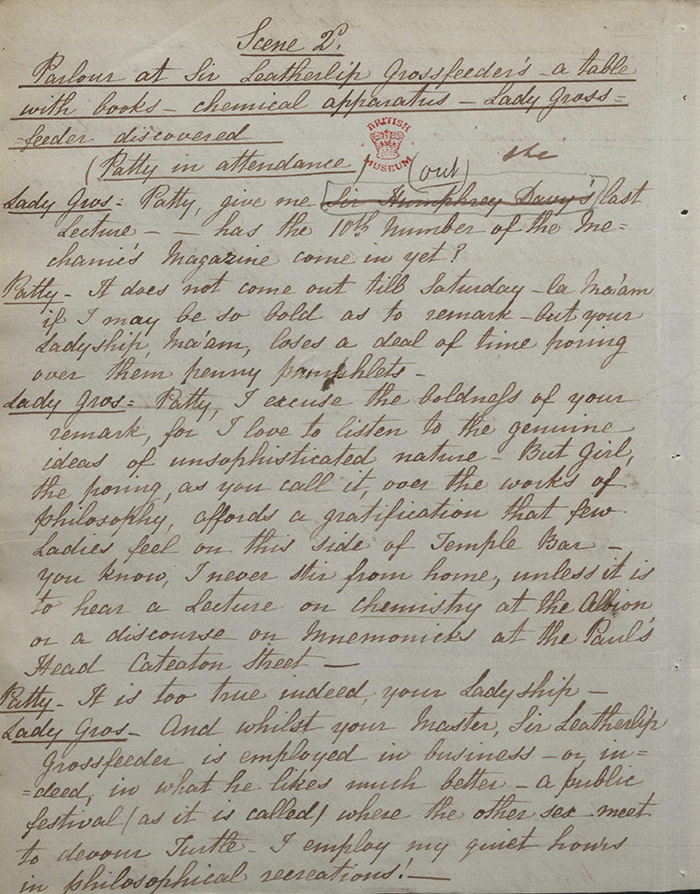 Scene 2d.
Parlour at Sir Leatherlip Grossfeeder's - a table
with books - chemical apparatus - Lady Gross=
=feeder discovered
(Patty in attendance)
BRITISH
MUSEUM
(out)
the
Lady Gros= Patty, give me Sir Humphrey Davy's last
Lecture - - has the 10th Number of the Me=
chanic's Magazine come in yet?
Patty - It does not come out till Saturday - la Ma'am
if I may be so bold as to remark - but your
Ladyship, Ma'am, loses a deal of time poring
over them penny pamphlets -
Lady Gros= Patty, I excuse the boldness of your
remark, for I love to listen to the genuine
ideas of unsophisticated nature - But Girl,
the poring, as you call it, over the works of
philosophy, affords a gratification that few
Ladies feel on this side of Temple Bar -
you know, I never stir from home, unless it is
to hear a Lecture on chemistry at the Albion
or a discourse on Mnemonicks at the Paul's
Head Cateaton Street -
Patty - It is too true indeed, your Ladyship -
Lady Gros - And whilst your Master, Sir Leatherlip
Grossfeeder is employed in business - or, in=
=deed, in what he likes much better - a public
festival (as it is called) where the other sex meet
to devour Turtle - I employ my quiet hours
in philosophical recreations! -